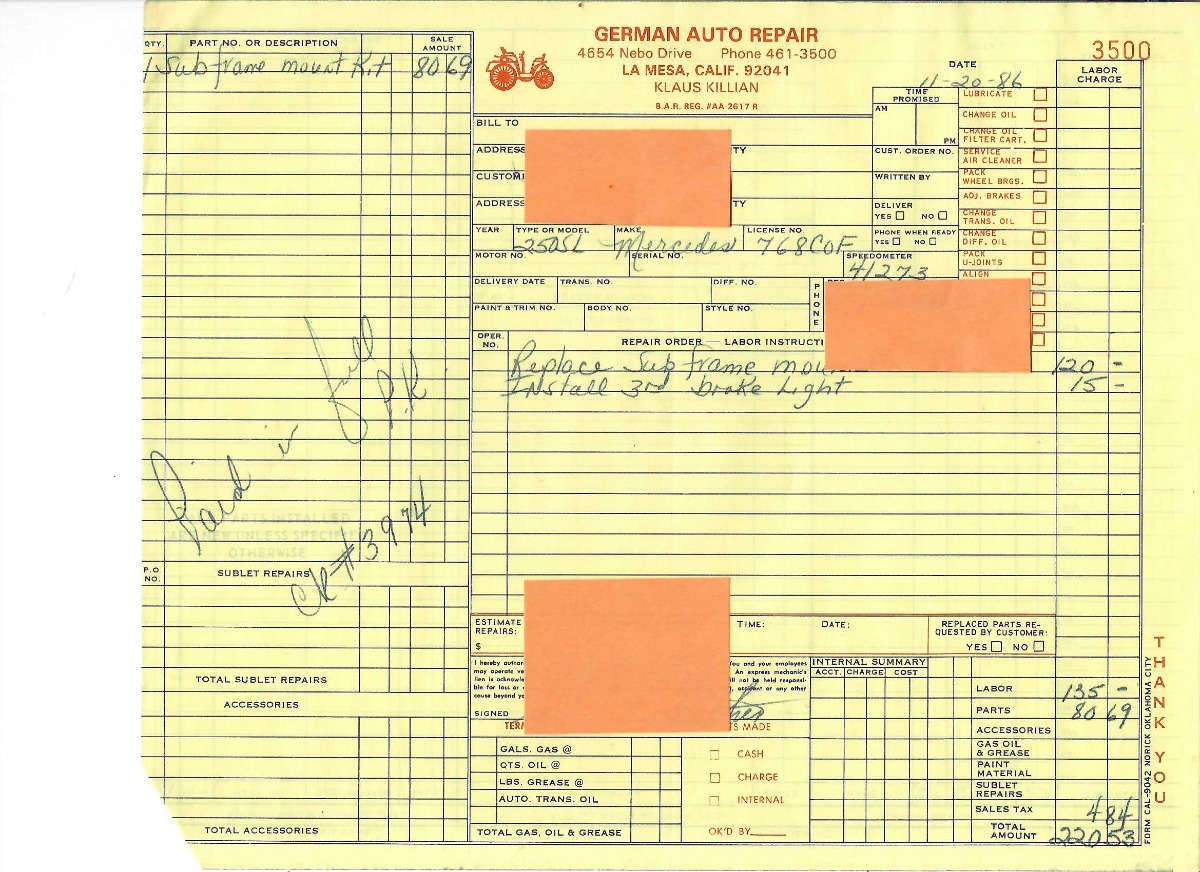 GERMAN AUTO REPAIR
4654 Nebo Drive Phone 461-3500
LA MESA, CALIF. 92041
KLAUS KILLIAN
B.A.R. REG. #AA 2617 R
3500
QTY. PART NO. OR DESCRIPTION SALE AMOUNT
1 Sub frame mount Kit 80 69
DATE
11-20-86
LABOR CHARGE
TIME PROMISED
AM
PM
LUBRICATE
CHANGE OIL
CHANGE OIL FILTER CART.
SERVICE AIR CLEANER
PACK WHEEL BRGS.
ADJ. BRAKES
CHANGE TRANS. OIL
CHANGE DIFF. OIL
PACK U-JOINTS
ALIGN
BILL TO
ADDRESS
TY
CUSTOM
ADDRESS
TY
CUST. ORDER NO.
WRITTEN BY
DELIVER
YES NO
PHONE WHEN READY
YES NO
YEAR TYPE OR MODEL MAKE LICENSE NO.
250SL Mercedes 768COF
MOTOR NO. SERIAL NO. SPEEDOMETER
41273
DELIVERY DATE TRANS. NO. DIFF. NO.
PHONE
PAINT & TRIM NO. BODY NO. STYLE NO.
OPER. NO. REPAIR ORDER — LABOR INSTRUCTI
Replace Sub frame mou 120 -
Install 3rd brake Light 15 -
Paid in full
P.K
CK #3974
PARTS INSTALLED
ARE NEW UNLESS SPECIFIED
OTHERWISE
P.O. NO. SUBLET REPAIRS
TOTAL SUBLET REPAIRS
ACCESSORIES
TOTAL ACCESSORIES
ESTIMATE
REPAIRS:
$
TIME: DATE:
REPLACED PARTS RE-
QUESTED BY CUSTOMER:
YES NO
I hereby author
may operate ve
lien is acknowle
ble for loss or
cause beyond yo
You and your employees
An express mechanic's
ill not be held responsi-
accident or any other
SIGNED
TER
S MADE
INTERNAL SUMMARY
ACCT. CHARGE COST
GALS. GAS @
QTS. OIL @
LBS. GREASE @
AUTO. TRANS. OIL
TOTAL GAS, OIL & GREASE
CASH
CHARGE
INTERNAL
OK'D BY
LABOR 135 -
PARTS 80 69
ACCESSORIES
GAS OIL & GREASE
PAINT MATERIAL
SUBLET REPAIRS
SALES TAX 4 84
TOTAL AMOUNT 220 53
FORM CAL-9042 NORICK OKLAHOMA CITY
THANK YOU